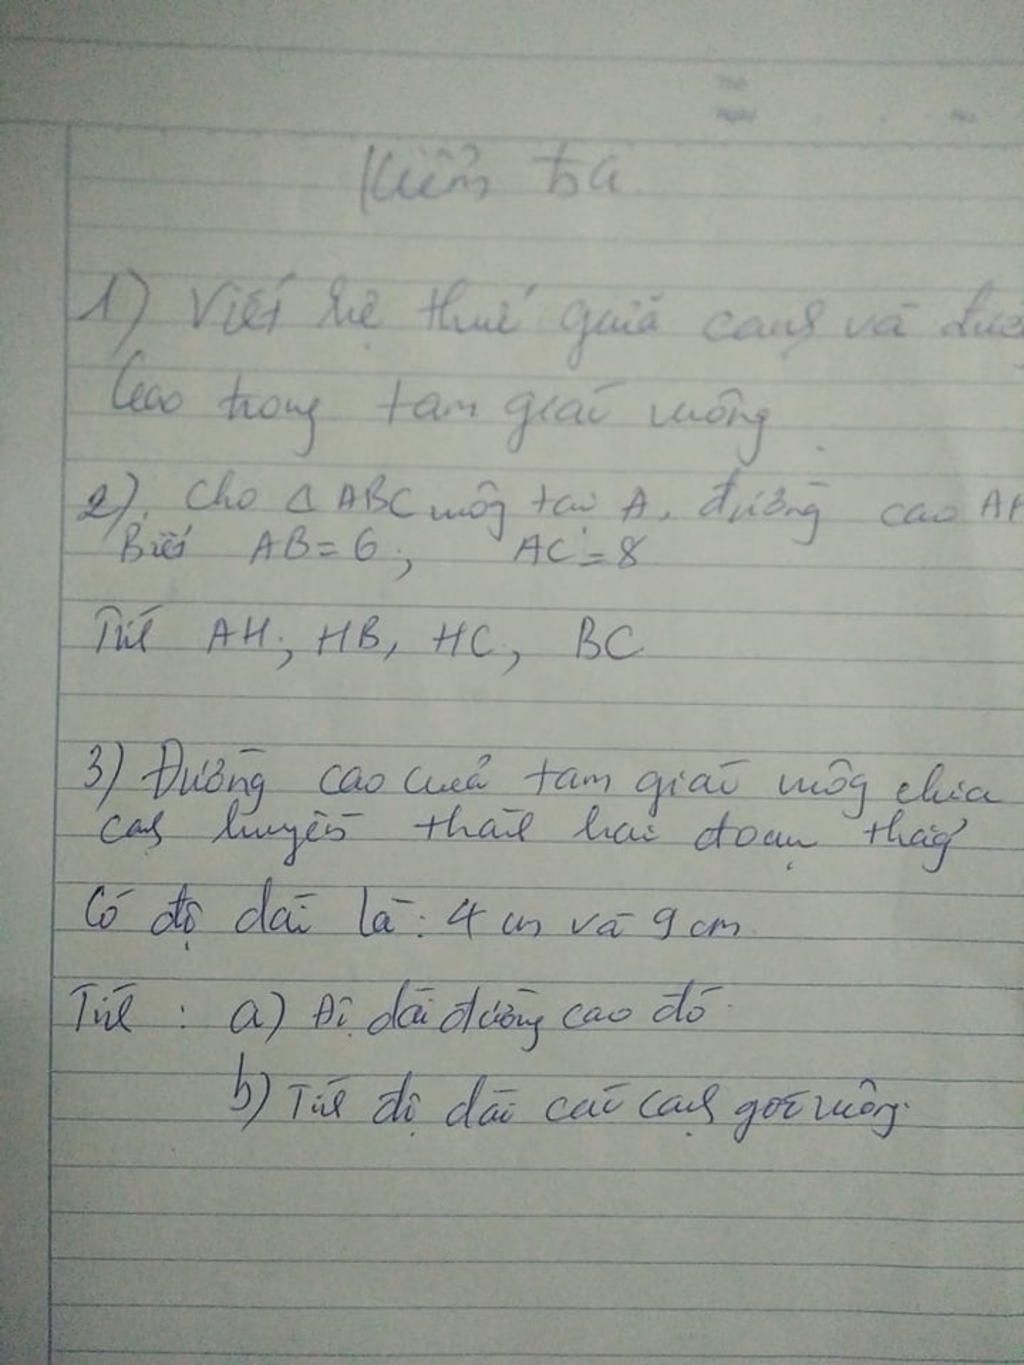 Kiểm tra
1) Viết hệ thức giữa cạnh và đườ
Cao trong tam giác vuông
2). Cho Δ ABC vuông tại A, đường cao AH
Biết AB = 6, AC = 8
Tính AH; HB, HC, BC
3) Đường cao của tam giác vuông chia
cạnh huyền thành hai đoạn thẳng
Có độ dài là: 4 cm và 9 cm
Tính : a) Độ dài đường cao đó
b) Tính độ dài các cạnh góc vuông.